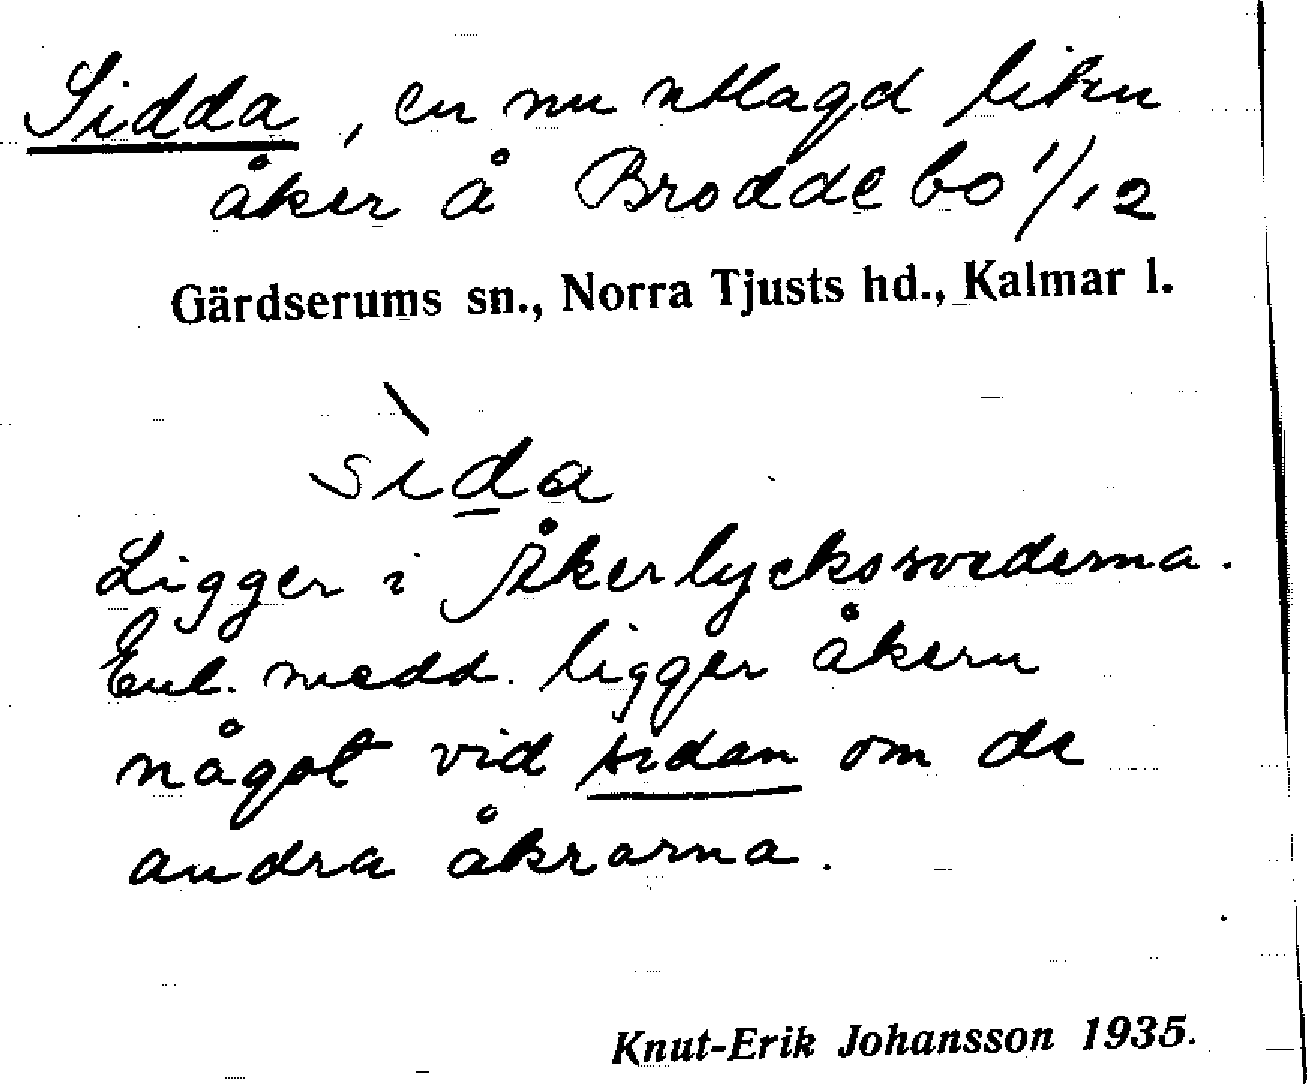 Sidda, en nu utlagd liten
åker å Broddebo 1/12
Gärdserums sn., Norra Tjusts hd., Kalmar l.
sìda
Ligger i Åkerlycksvederna.
Enl. medd. ligger åkern
något vid sidan om de
andra åkrarna.
Knut-Erik Johansson 1935.